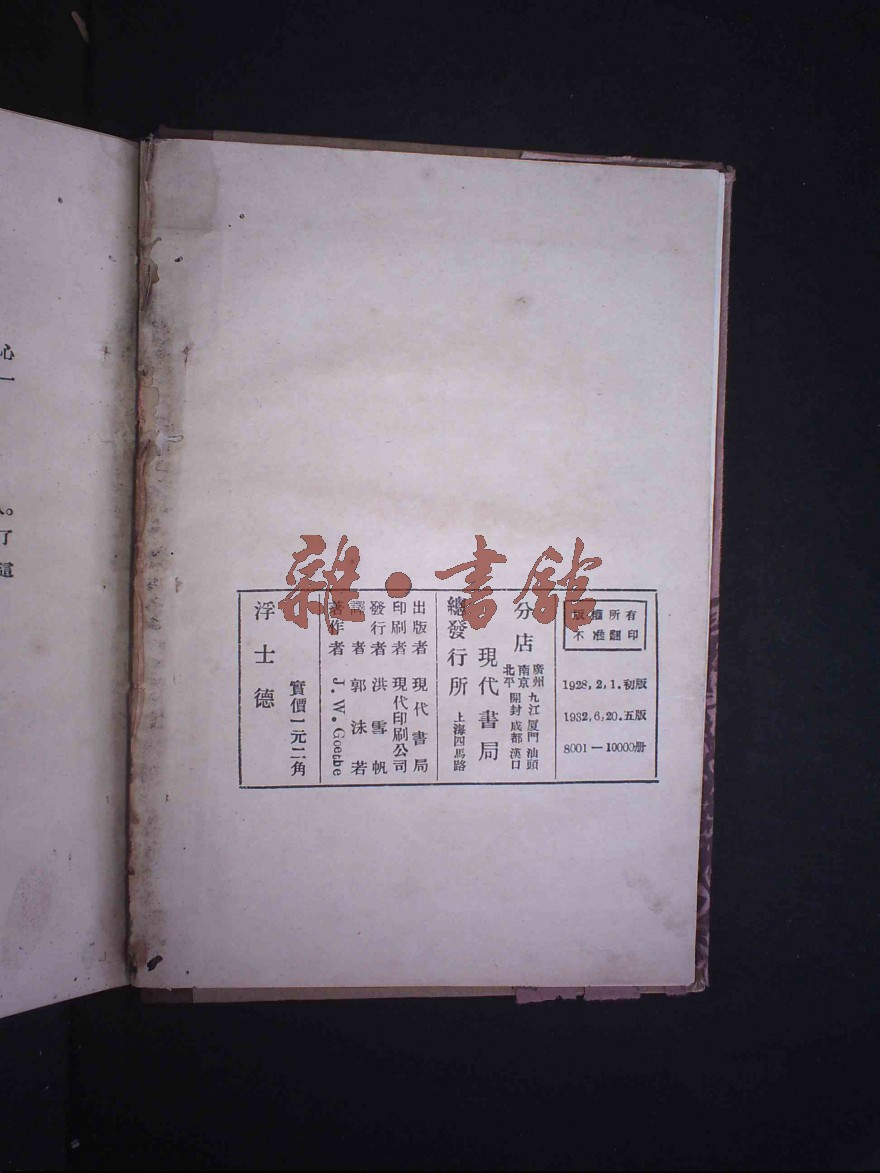 版權所有
不准翻印
1928,2,1.初版
1932,6,20.五版
8001—10000册
分店
廣州 九江 厦門 汕頭
南京 開封 成都 漢口
北平
現代書局
總發行所 上海四馬路
出版者 現代書局
印刷者 現代印刷公司
發行者 洪雪帆
譯者 郭沫若
著作者 J. W. Goethe
實價一元二角
浮士德
雜·書館
心
一
了
這